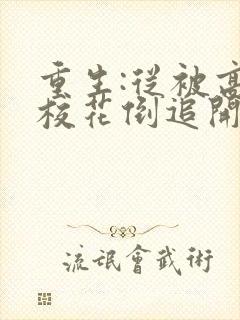 重生:從被高
校花倒追開
流氓會武術